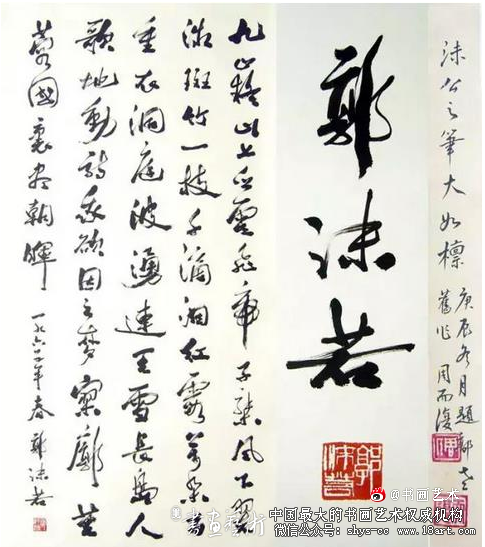 沫公之筆大如
庚辰冬月題郭老
舊作 周而復
郭沫若
郭沫若
九嶷山上白雲飛帝子乘風下翠
微斑竹一枝千滴泪紅霞萬朵百
重衣洞庭波湧連天雪長島人
歌地動詩我欲因之夢寥廓芙
蓉國裏盡朝暉 一九六二年春 郭沫若
書畫藝術
@书画艺术
中国最大的书画艺术权威机构
微信公众号: shys-cc www.12345677.com